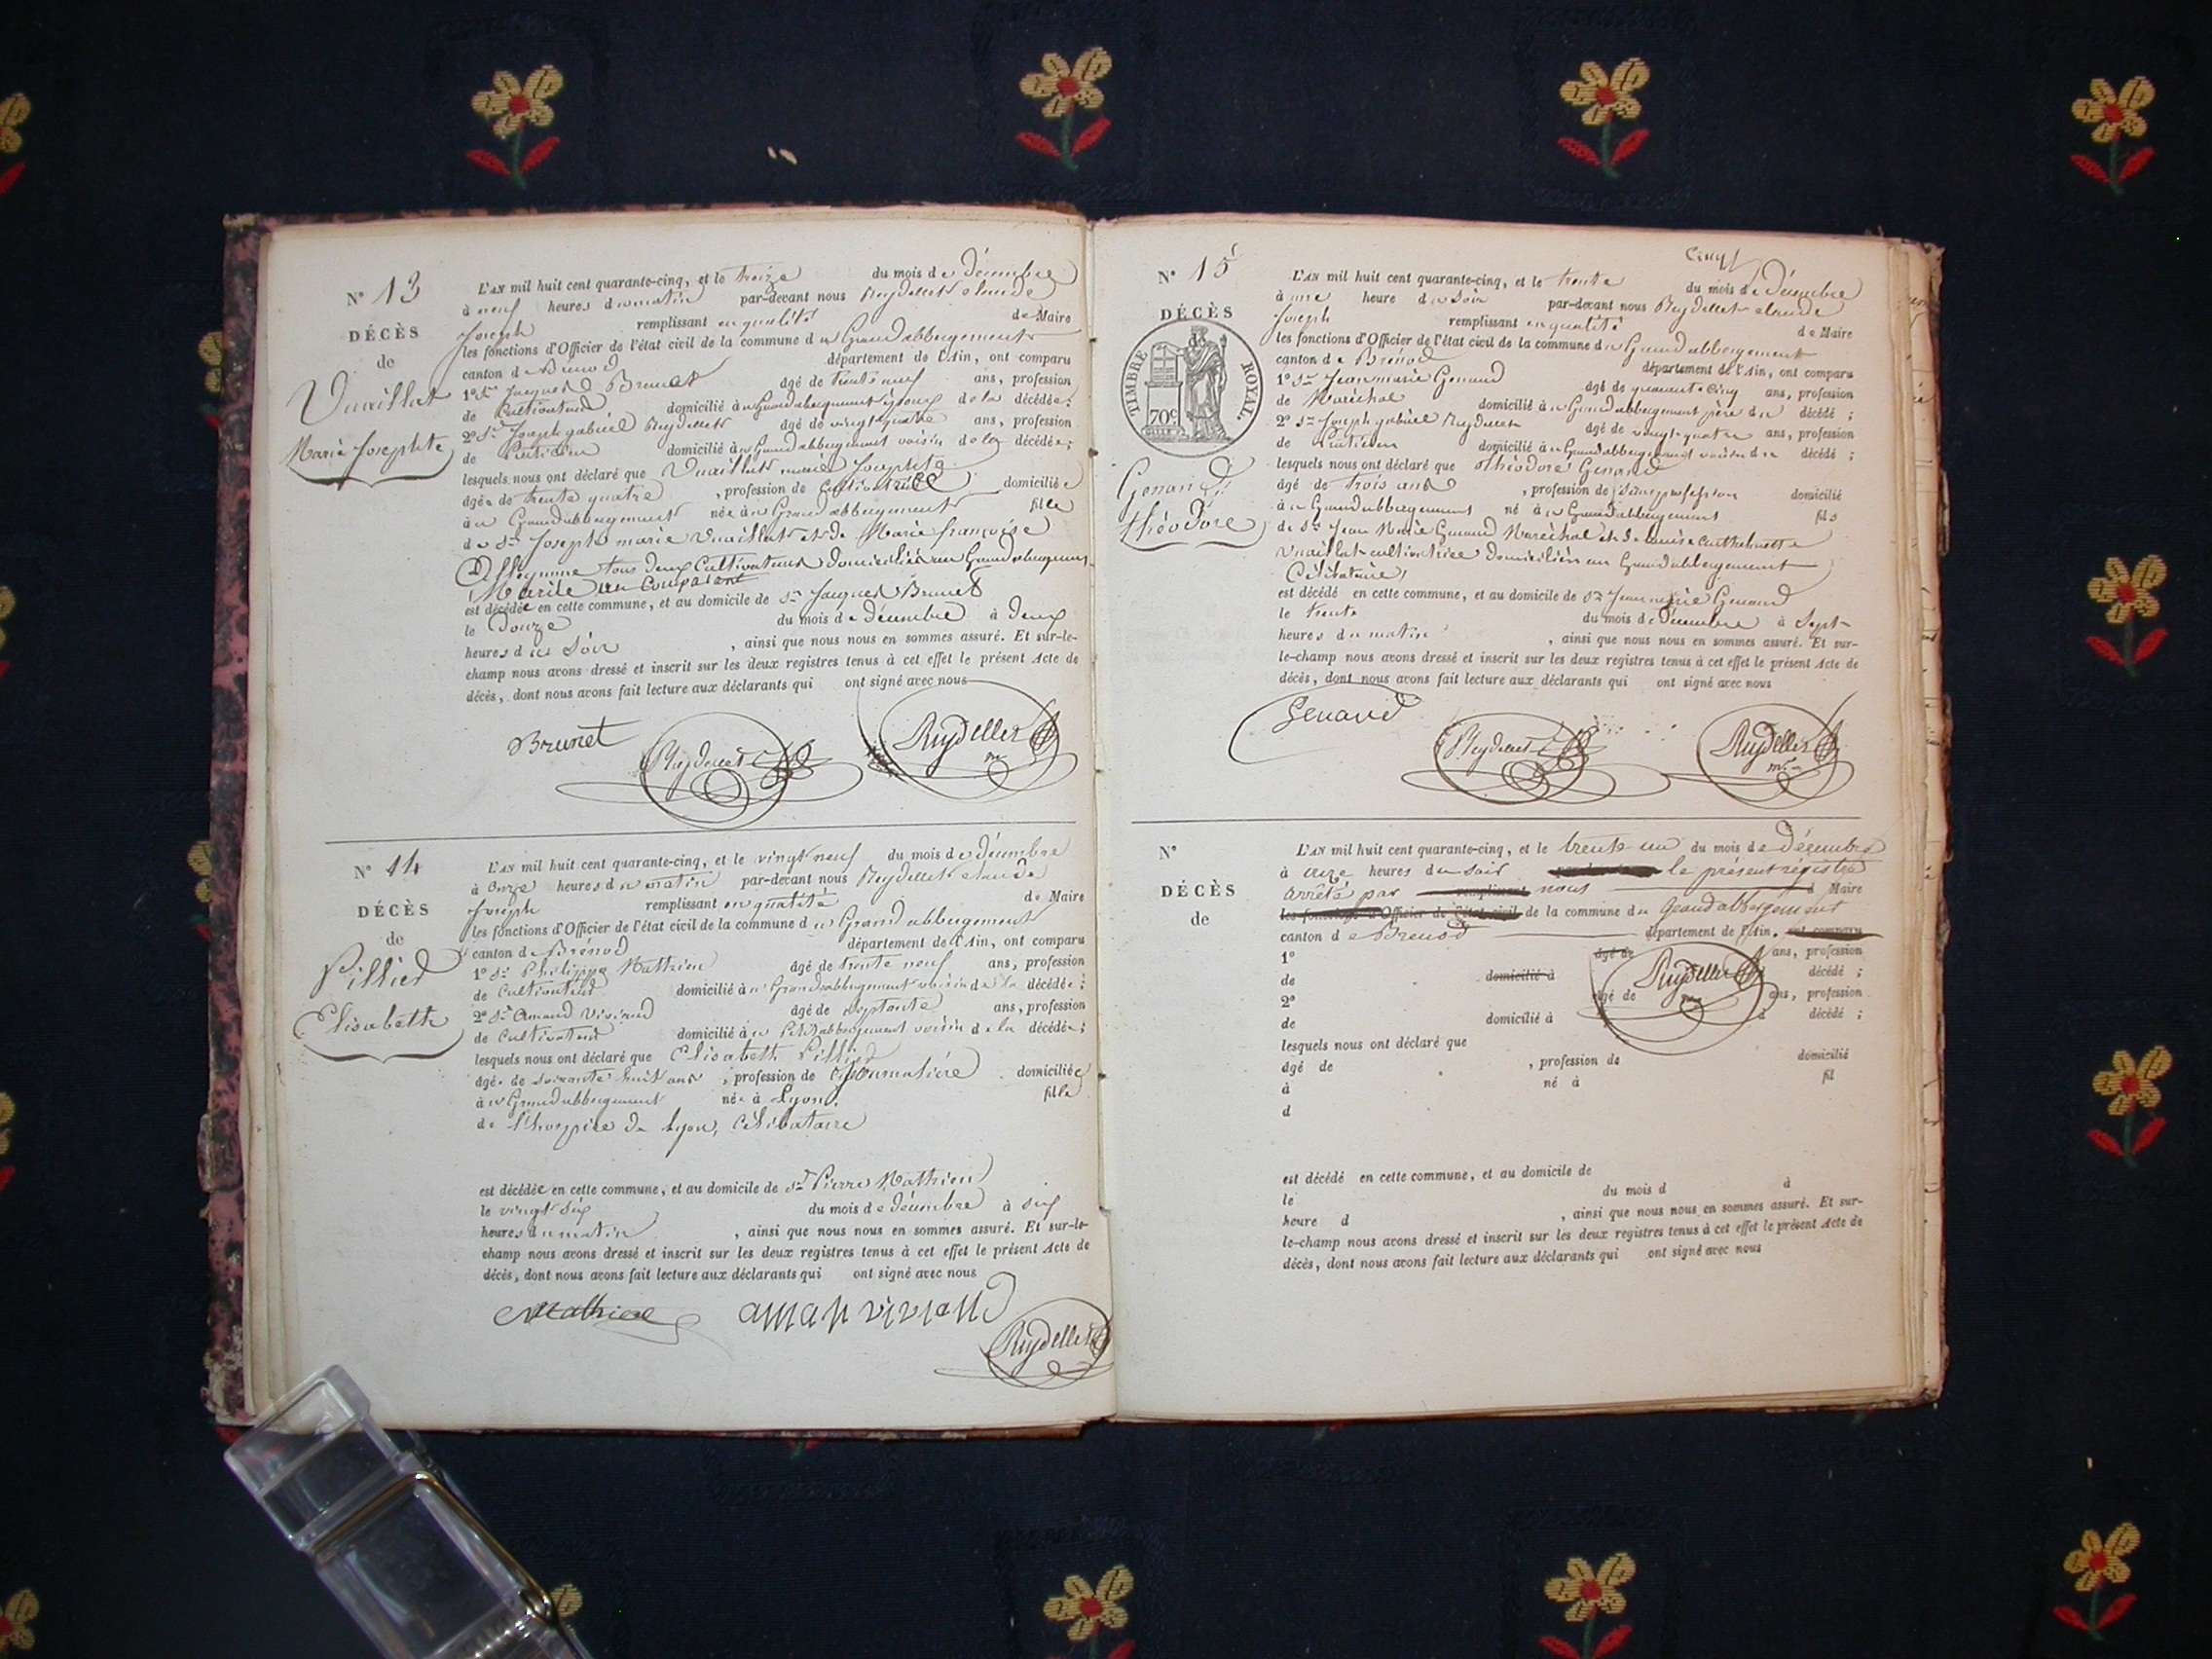 N° 13
DÉCÈS
de
Vuaillat
Marie Josephte
L'AN mil huit cent quarante-cinq, et le treize du mois de décembre
à neuf heures du matin par-devant nous Reydellet claude
Joseph remplissant en qualité de Maire
les fonctions d'Officier de l'état civil de la commune du Grand abbergement
canton de Brénod département de l'Ain, ont comparu
1° Sr Jacques Brunet âgé de trente neuf ans, profession
de Cultivateur domicilié à Grand abbergement époux de la décédée;
2° Sr Joseph gabriel Reydellet âgé de vingt quatre ans, profession
de domicilié à Grand abbergement voisin de la décédée;
lesquels nous ont déclaré que Vuaillat marie Josephte
âgée de trente quatre, profession de Cultivatrice domiciliée
à Grand abbergement née à Grand abbergement fille
de Sr Joseph marie Vuaillat et de Marie françoise
tous deux Cultivateurs domiciliés au Grand abbergement
Mariée au Comparant
est décédée en cette commune, et au domicile de Sr Jacques Brunet
le Douze du mois de décembre à deux
heures du soir, ainsi que nous nous en sommes assuré. Et sur-le-
champ nous avons dressé et inscrit sur les deux registres tenus à cet effet le présent Acte de
décès, dont nous avons fait lecture aux déclarants qui ont signé avec nous
Brunet Reydellet Reydellet
N° 14
DÉCÈS
de
Pillied
Elisabeth
L'AN mil huit cent quarante-cinq, et le vingt neuf du mois de décembre
à onze heures du matin par-devant nous Reydellet claude
Joseph remplissant en qualité de Maire
les fonctions d'Officier de l'état civil de la commune du Grand abbergement
canton de Brénod département de l'Ain, ont comparu
1° Sr Philippe Mathieu âgé de trente neuf ans, profession
de Cultivateur domicilié à Grand abbergement voisin de la décédée;
2° Sr Amand Viviand âgé de septante ans, profession
de Cultivateur domicilié à Petit abbergement voisin de la décédée;
lesquels nous ont déclaré que Elisabeth Pillied
âgée de soixante huit ans, profession de Journalière domiciliée
à Grand abbergement née à Lyon, fille
de l'hospice de Lyon, Célibataire
est décédée en cette commune, et au domicile de Sr Pierre Mathieu
le vingt six du mois de décembre à six
heures du matin, ainsi que nous nous en sommes assuré. Et sur-le-
champ nous avons dressé et inscrit sur les deux registres tenus à cet effet le présent Acte de
décès, dont nous avons fait lecture aux déclarants qui ont signé avec nous
Mathieu aman viviand
Reydellet
cinq
N° 15
DÉCÈS
TIMBRE ROYAL.
70c
Genand
théodore
L'AN mil huit cent quarante-cinq, et le trente du mois de décembre
à une heure du soir par-devant nous Reydellet claude
Joseph remplissant en qualité de Maire
les fonctions d'Officier de l'état civil de la commune du Grand abbergement
canton de Brénod département de l'Ain, ont comparu
1° Sr Jean marie Genand âgé de quarante cinq ans, profession
de Maréchal domicilié à Grand abbergement père du décédé;
2° Sr Joseph gabriel Reydellet âgé de vingt quatre ans, profession
de domicilié à Grand abbergement voisin du décédé;
lesquels nous ont déclaré que théodore Genand
âgé de trois ans, profession de sans profession domicilié
à Grand abbergement né à Grand abbergement fils
de Sr Jean Marie Genand Maréchal et de Louise
Vuaillat cultivatrice domiciliés au Grand abbergement
Célibataire
est décédé en cette commune, et au domicile de Sr Jean marie Genand
le trente du mois de décembre à Sept
heures du matin, ainsi que nous nous en sommes assuré. Et sur-
le-champ nous avons dressé et inscrit sur les deux registres tenus à cet effet le présent Acte de
décès, dont nous avons fait lecture aux déclarants qui ont signé avec nous
Genand
Reydellet Reydellet
N°
DÉCÈS
de
L'AN mil huit cent quarante-cinq, et le trente un du mois de décembre
à onze heures du soir le présent régistre
arrêté par nous Maire
les fonctions d'Officier de l'état civil de la commune du Grand abbergement
canton de Brenod département de l'Ain, ont comparu
1° âgé de ans, profession
de domicilié à décédé;
2° âgé de ans, profession
de domicilié à d décédé;
Reydellet
lesquels nous ont déclaré que
âgé de, profession de domicilié
à né à fil
d
est décédé en cette commune, et au domicile de
le du mois d à
heure d, ainsi que nous nous en sommes assuré. Et sur-
le-champ nous avons dressé et inscrit sur les deux registres tenus à cet effet le présent Acte de
décès, dont nous avons fait lecture aux déclarants qui ont signé avec nous